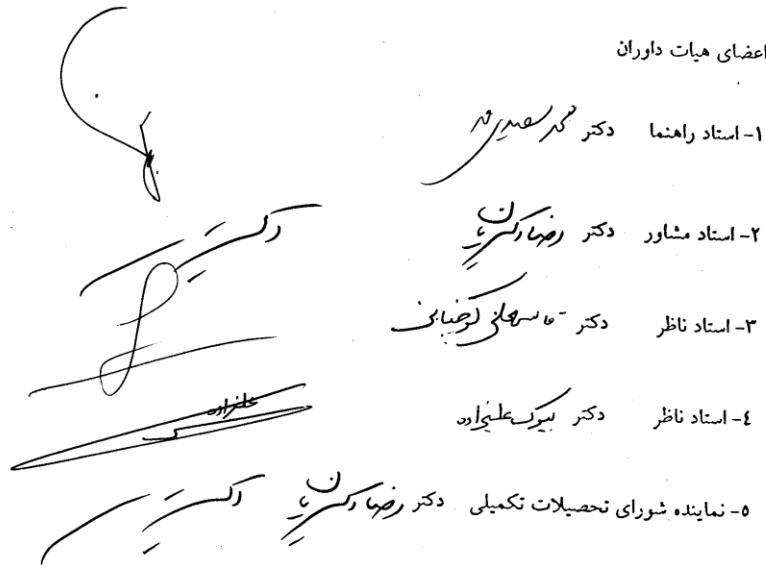 اعضای هیات داوران
۱- استاد راهنما دکتر محمد سعیدی
۲- استاد مشاور دکتر رضا اکبریان
۳- استاد ناظر دکتر قاسمعلی کوچنانی
٤- استاد ناظر دکتر بیوک علیزاده
علیزاده
٥- نماینده شورای تحصیلات تکمیلی دکتر رضا اکبریان